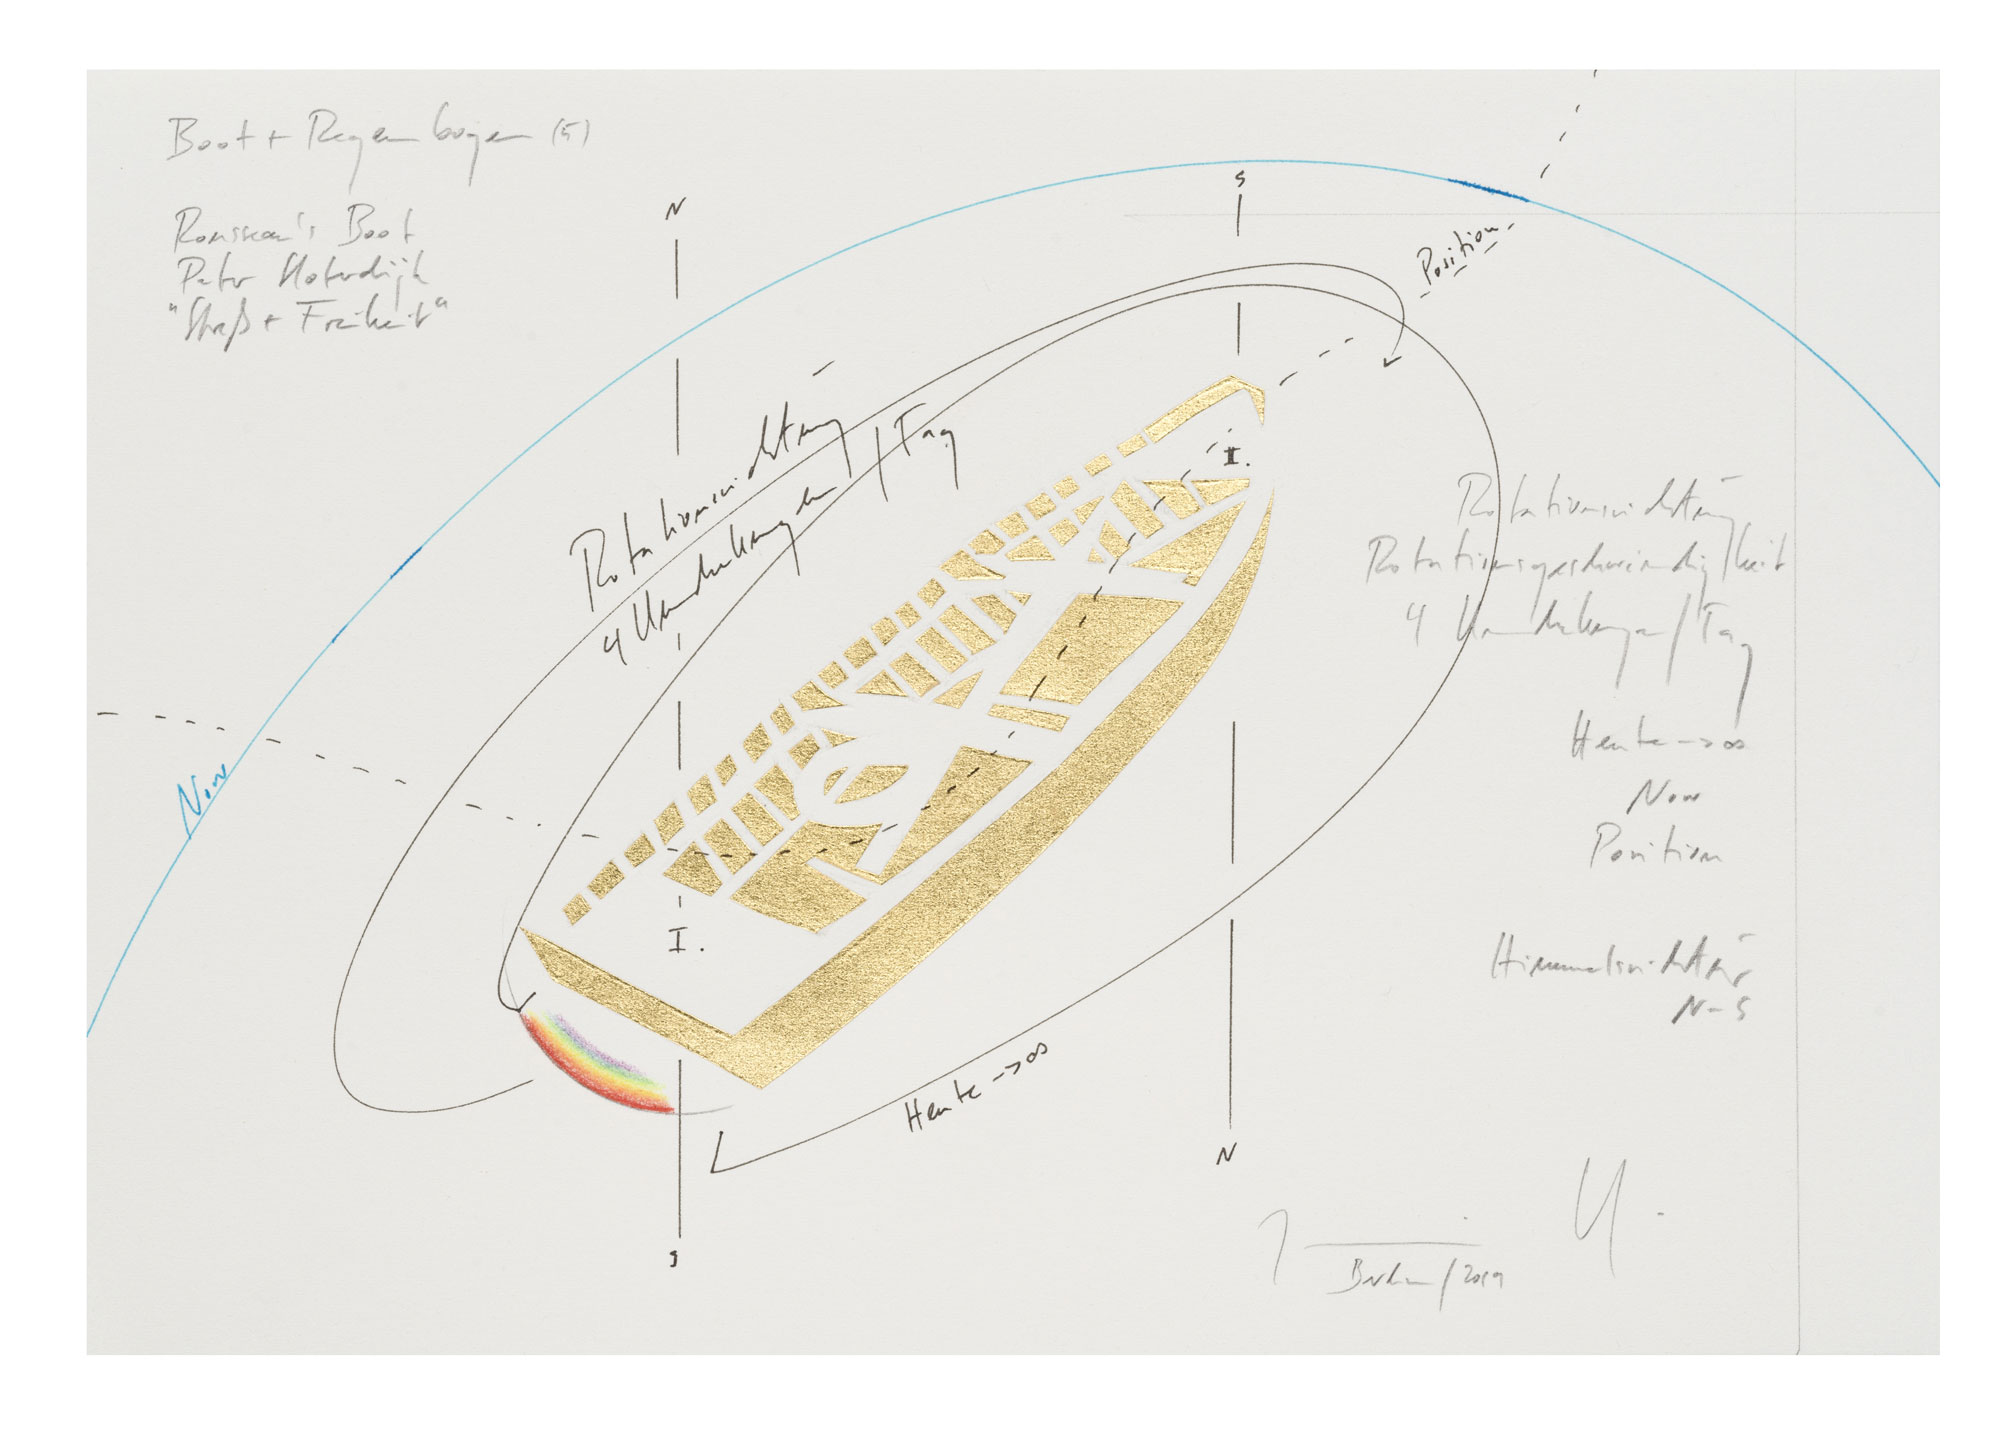 Boot + Regenbogen (5)
Rousseau's Boot
Peter Sloterdijk
"Streß + Freiheit"
N
S
Position
Rotationsrichtung
4 Umdrehungen / Tag
II.
Now
I.
Heute -> ∞
S
N
Rotationsrichtung
Rotationsgeschwindigkeit
4 Umdrehungen / Tag
Heute -> ∞
Now
Position
Himmelsrichtung
N-S
Berlin / 2019